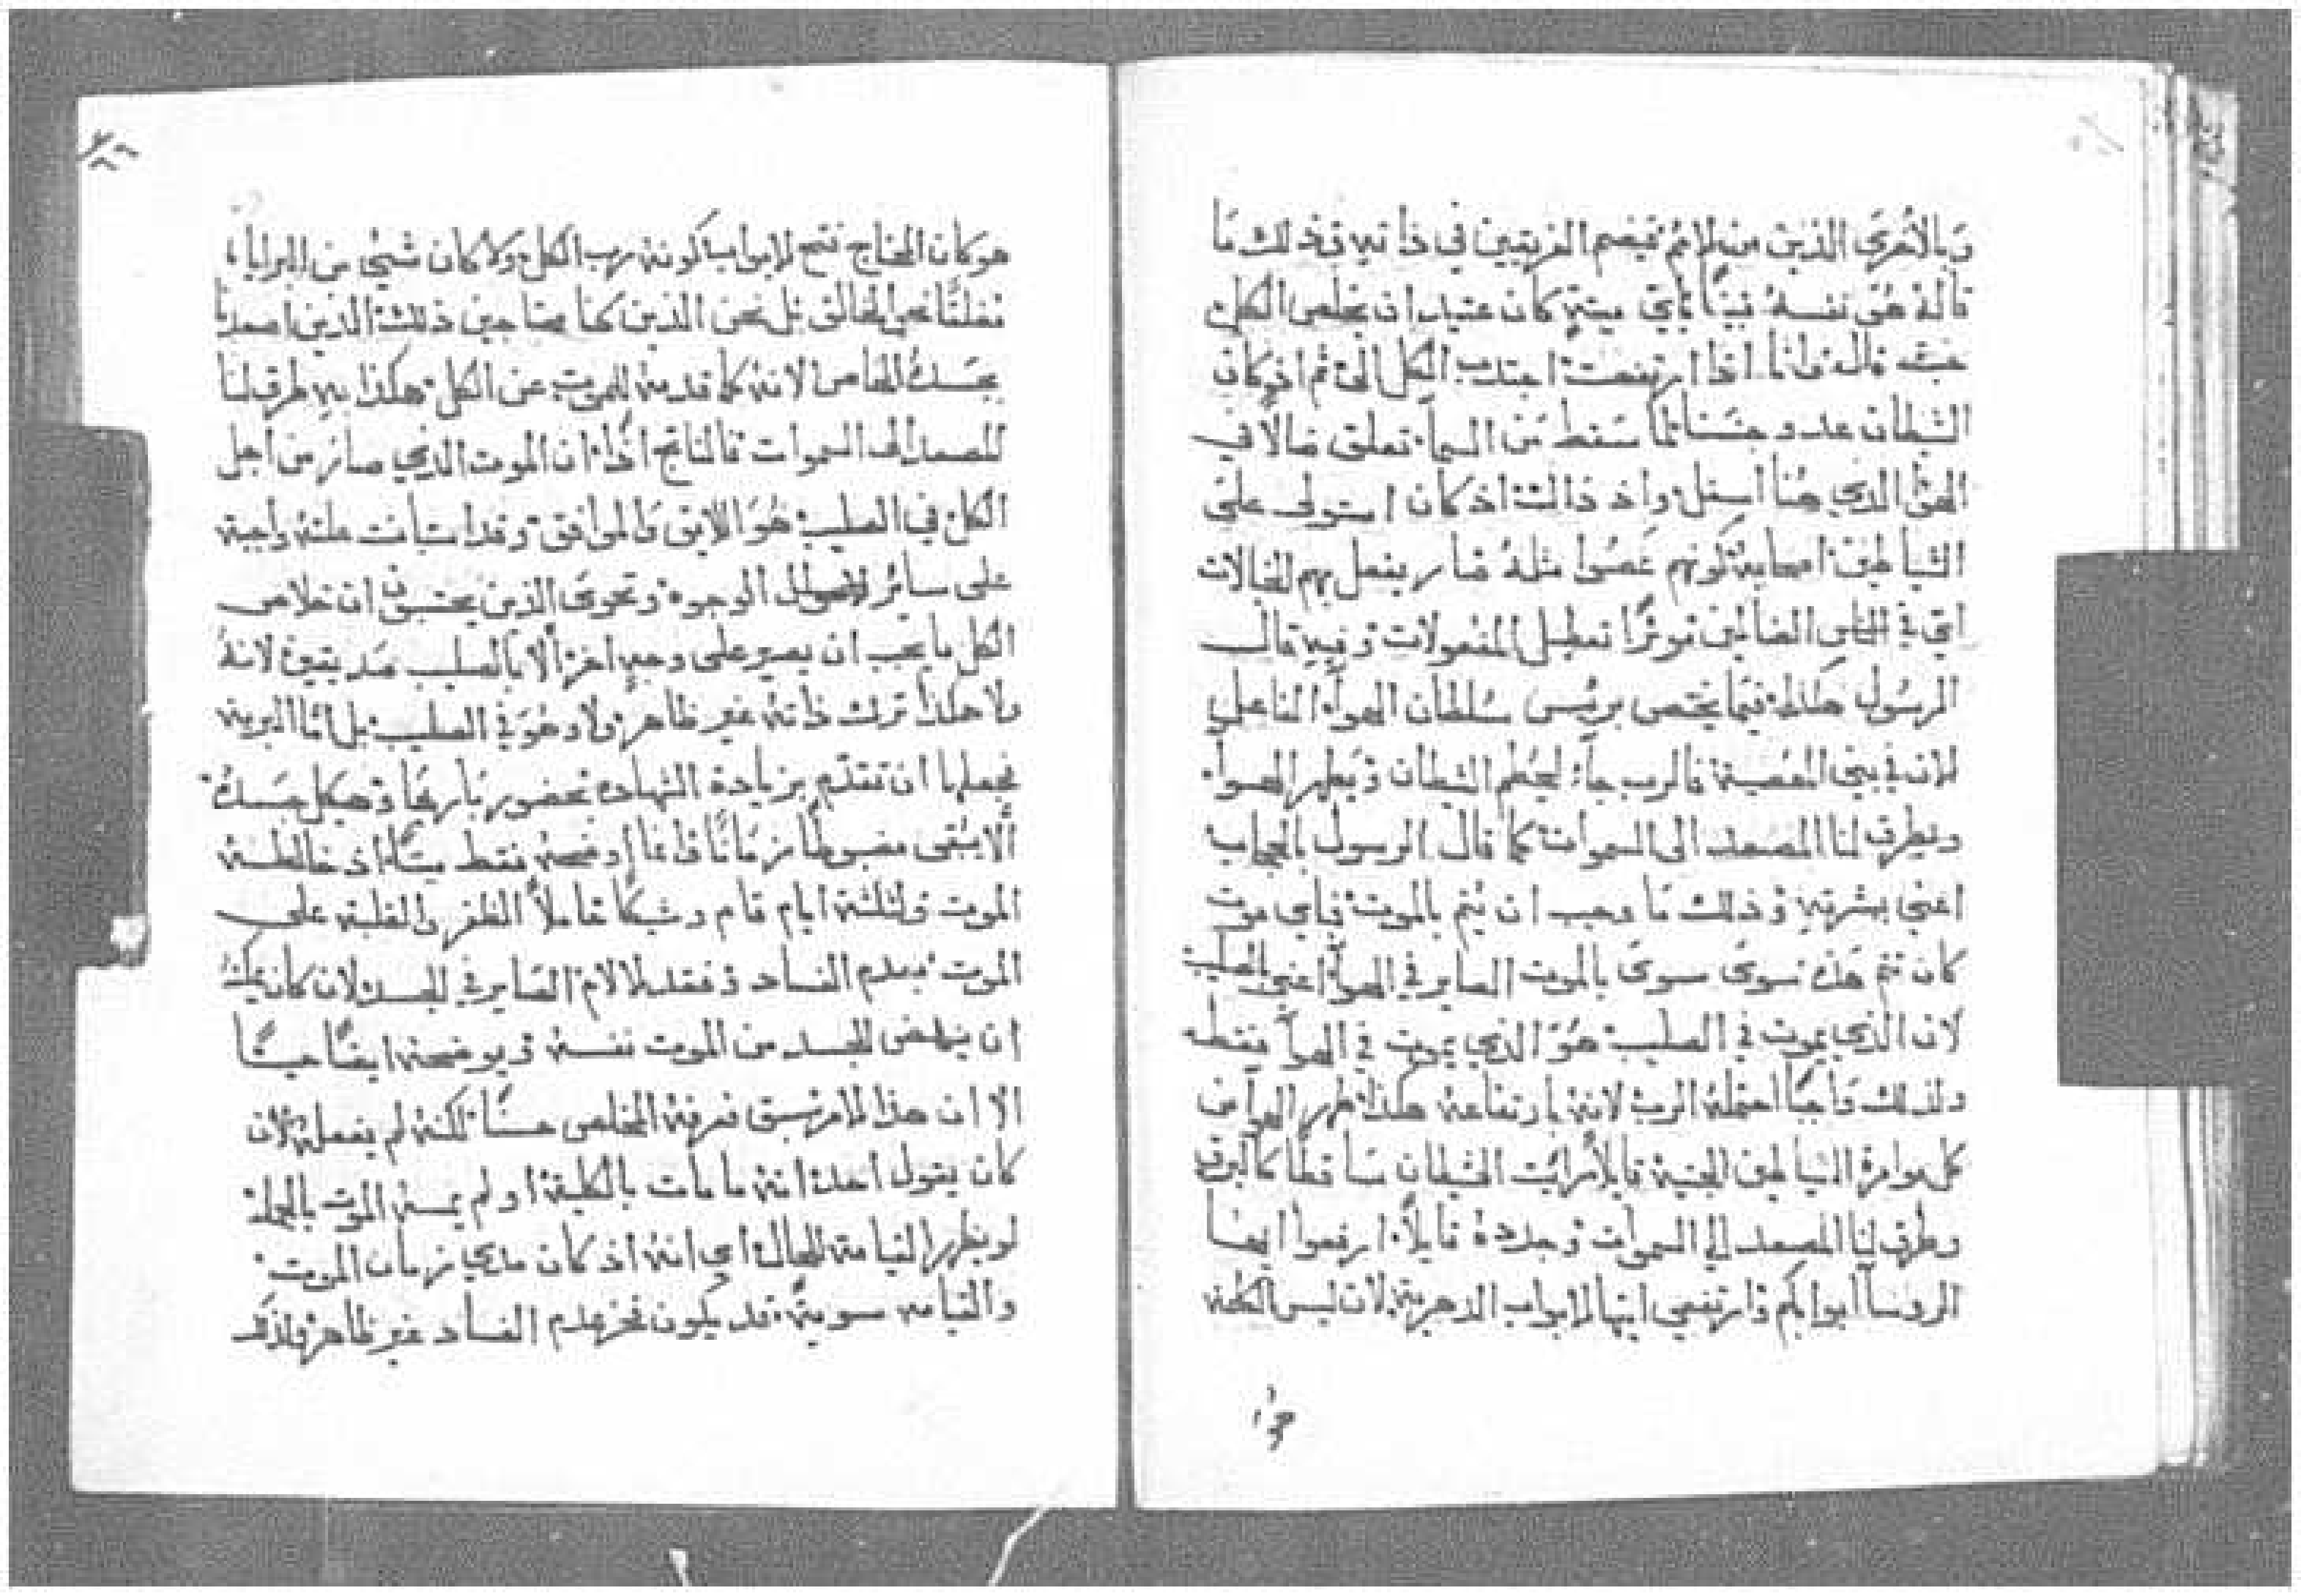 وبالأحرى الذين من الامم فيضم الفريقين في ذاته وذلك ما
قاله هو نفسه مبيناً باي ميتة كان عتيد ان يخلص الكل
قال وانا اذا ارتفعت اجتذب الكل اليّ ثم اذ كان
الشيطان عدو جنسنا لما سقط من السماء تعلق ضالاً في
الهواء الذي هنا اسفل واذ ذالك اذ كان استولى على
الشياطين اصحابه كونهم عصوا مثله صار يفعل بهم الخيالات
في الناس الضالين تعطيل المفعولات وفيه قال
الرسول هكذا فيما يختص برئيس سلطان الهواء الفاعل
الان في بني المعصية فالرب جاء ليحطم الشيطان ويطهر الهواء
ويطرق لنا المصعد الى السموات كما قال الرسول بالحجاب
اعني بشرته وذلك ما وجب ان يتم بالموت فباي موت
كان تتم هذه سوى سوى بالموت الصاير في الهواء اعني الصليب
لان الذي يموت في الصليب هو الذي يموت في الهواء فقط
ولذلك واجباً احتمله الرب لانه بارتفاعه هكذا طهر الهواء من
كل موامرة الشياطين الخبيثة قايلاً رأيت الشيطان ساقطاً كالبرق
وطرق لنا المصعد الى السموات وجدده قايلاً ارفعوا ايها
الروسا ابوابكم وارتفعي ايتها الابواب الدهرية لان ليس الكلمة
هو كان المحتاج فتح الابواب كونه رب الكل ولا كان شيء من البرايا
مغلقاً عن الخالق بل نحن الذين كنا محتاجين ذلك الذين اصعدنا
بجسده الخاص لانه كما قدمه للموت عن الكل هكذا به طرق لنا
المصعد الى السموات فالناتج اذاً ان الموت الذي صار من اجل
الكل في الصليب هو اللايق والموافق وقد استبانت علته واجبة
على ساير الوجوه الذين ان خلاص
الكل ما يجب ان يصير على وجه اخر الا بالصليب لانه
ولا هكذا ترك ذاته غير ظاهر ولا وهو في الصليب بل اما البرية
فجعلها ان تقدم بزيادة الشهادة بحضور باريها وهيكل جسده
ألا يبقى مضبوطاً زماناً اوضحه فقط ميتاً اذ خالطه
الموت ولثلثة ايام قام وشيكاً حاملاً الظفر والغلبة على
الموت بعدم الفساد وفقد الالام الصاير في الجسد لان كان يمكنه
ان ينهض الجسد من الموت نفسه ويوضحه ايضاً حياً
الا ان هذا الامر سبق فعرفه المخلص حسناً لكنه لم يفعله لان
كان يقول احد انه ما مات بالكلية او لم يمسه الموت بالجملة
لو يظهر القيامة للحال اي انه اذ كان زمان الموت
والقيامة سوية قد يكون فخر عدم الفساد غير ظاهر ولذلك